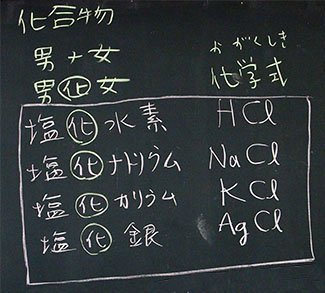 化合物
男+女
男化女
かがくしき
化学式
塩化水素 HCl
塩化ナトリウム NaCl
塩化カリウム KCl
塩化銀 AgCl